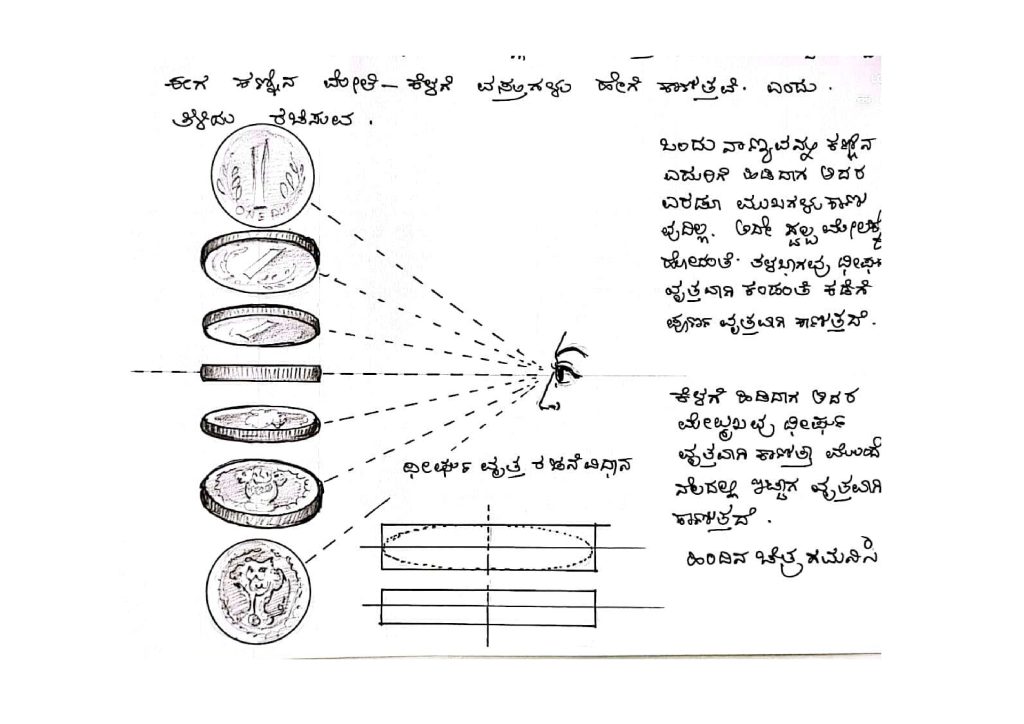 ಈಗ ಕಣ್ಣಿನ ಮೇಲೆ - ಕೆಳಗೆ ವಸ್ತುಗಳು ಹೇಗೆ ಕಾಣುತ್ತವೆ. ಎಂದು.
ತಿಳಿದು ರಚಿಸುವ.
ONE
ಒಂದು ನಾಣ್ಯವನ್ನು ಕಣ್ಣಿನ
ಎದುರಿಗೆ ಹಿಡಿದಾಗ ಅದರ
ಎರಡೂ ಮುಖಗಳು ಕಾಣು
ವುದಿಲ್ಲ. ಅದೇ ಸ್ವಲ್ಪ ಮೇಲಕ್ಕೆ
ಹೋದಂತೆ. ತಳಭಾಗವು ಧೀರ್ಘ
ವೃತ್ತವಾಗಿ ಕಂಡಂತೆ ಕಡೆಗೆ
ಪೂರ್ಣ ವೃತ್ತವಾಗಿ ಕಾಣುತ್ತದೆ.
ಕೆಳಗೆ ಹಿಡಿದಾಗ ಅದರ
ಮೇಲ್ಮುಖವು ಧೀರ್ಘ
ವೃತ್ತವಾಗಿ ಕಾಣುತ್ತಾ ಮುಂದೆ
ನೆಲದಲ್ಲಿ ಇಟ್ಟಾಗ ವೃತ್ತವಾಗಿ
ಕಾಣುತ್ತದೆ.
ಹಿಂದಿನ ಚಿತ್ರ ಗಮನಿಸಿ
ಧೀರ್ಘ ವೃತ್ತ ರಚನೆ ವಿಧಾನ